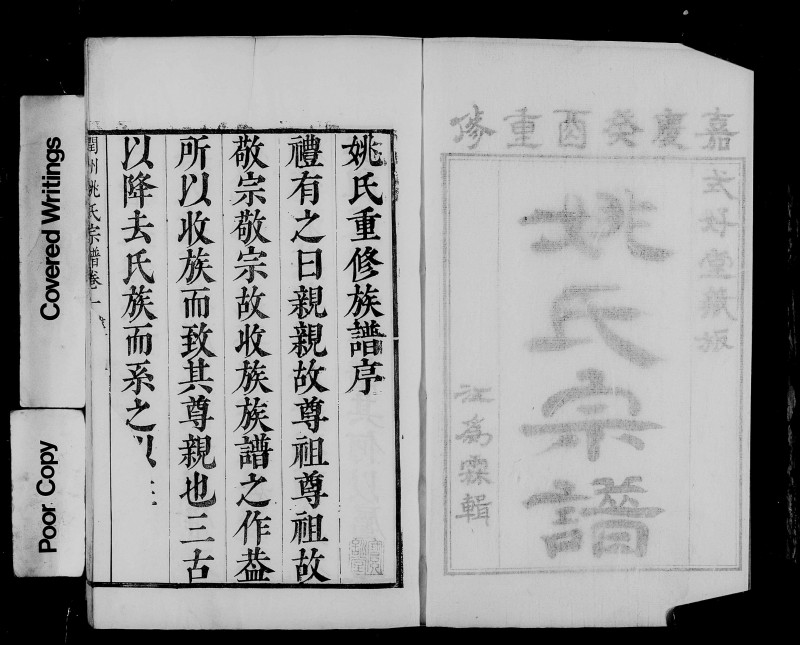 嘉慶癸酉重修
玄好堂藏板
姚氏宗譜
江為霖輯
姚氏重修族譜序
禮有之曰親親故尊祖尊祖故
敬宗敬宗故收族族譜之作葢
所以收族而致其尊親也三古
以降去氏族而系之以
潤州姚氏宗譜卷一
Covered Writings
Poor Copy